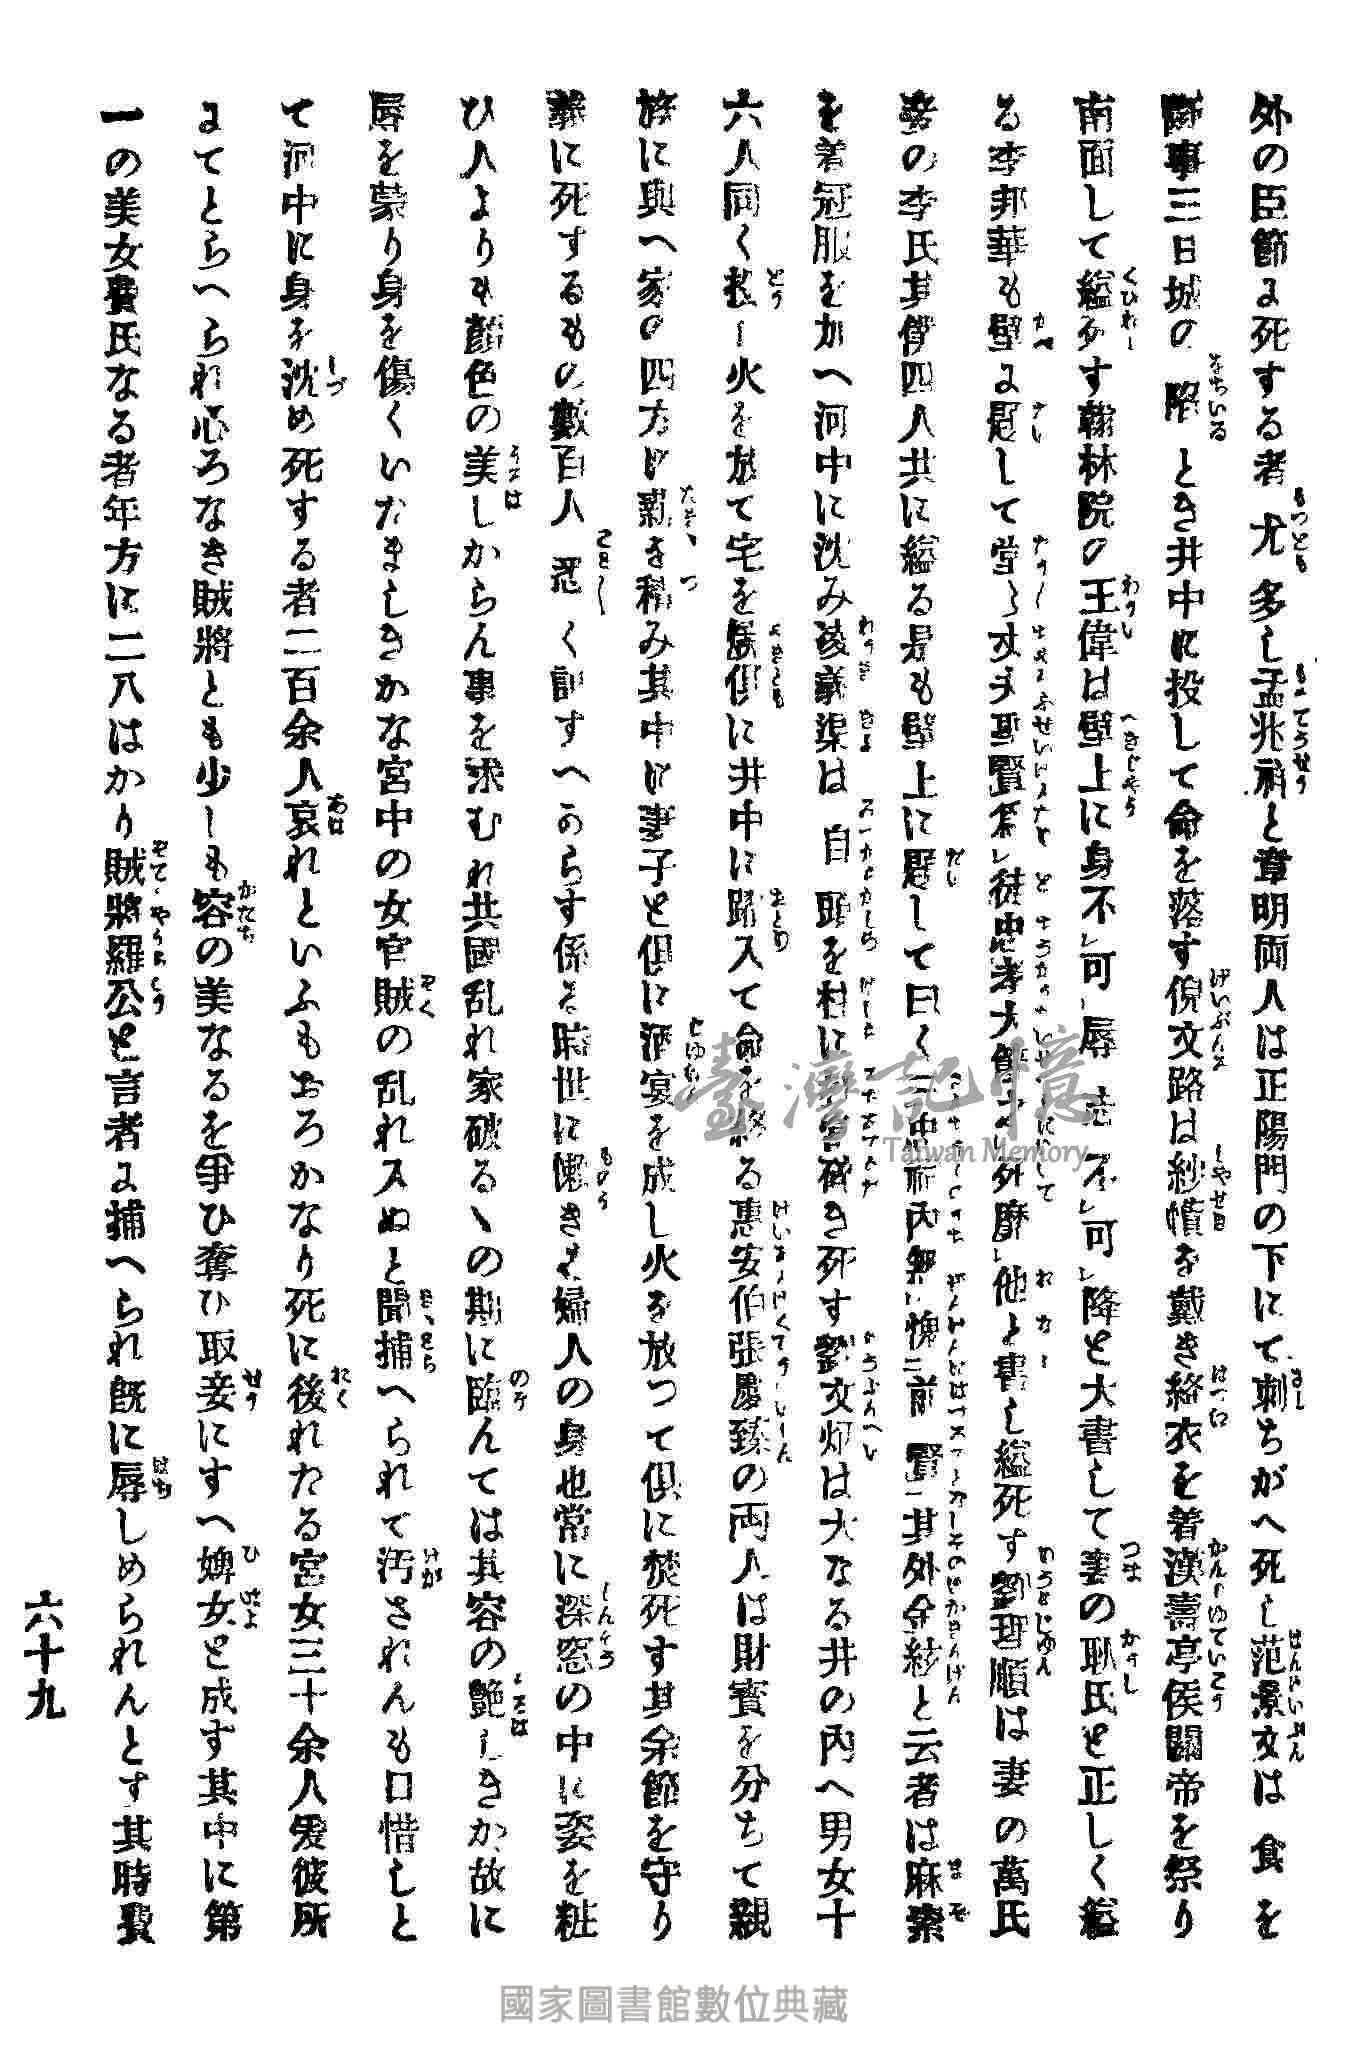 外の臣節に死する者尤多し孟兆祥と章明両人は正陽門の下にて刺ちがへ死し范景文は食を
断事三日城の陥とき井中に投して命を落す倪文路は紗幘を戴き絡衣を着漢壽亭侯關帝を祭り
南面して縊死す翰林院の王偉は壁上に身不レ可レ辱志不レ可レ降と大書して妻の耿氏と正しく縊
る李邦華も壁に題して堂〻丈夫聖賢為レ徒忠孝大節レ外靡レ他と書し縊死す劉理順は妻の萬氏
妾の李氏其僕四人共に縊る是も壁上に題して曰く内無レ愧二前賢一其外金鉉と云者は麻索
を着冠服を加へ河中に沈み凌義渠は自頭を柱に死す劉文炳は大なる井の内へ男女十
六人同く投し火を放て宅を倶に井中に踊入て命を終る惠安伯張臻の両人は財寳を分ちて親
族に與へ家の四方に薪を積み其中に妻子と倶に酒宴を成し火を放つて倶に焚死す其余節を守り
義に死するもの數百人悉く記すへからす係る時世に慵きは婦人の身也常に深窓の中に姿を粧
ひ人よりも顔色の美しからん事を求むれ共國乱れ家破るゝの期に臨んては其容の艶しきか故に
辱を蒙り身を傷くいたましきかな宮中の女官賊の乱れ入ぬと聞捕へられて汚されんも口惜しと
て河中に身を沈め死する者二百余人哀れといふもおろかなり死に後れたる宮女三十余人爰彼所
にてとらへられ心ろなき賊將とも少しも容の美なるを爭ひ奪ひ取妾にすへ婢女と成す其中に第
一の美女費氏なる者年方に二八はかり賊將羅公と言者に捕へられ既に辱しめられんとす其時費
六十九
臺灣記憶
Taiwan Memory
國家圖書館數位典藏